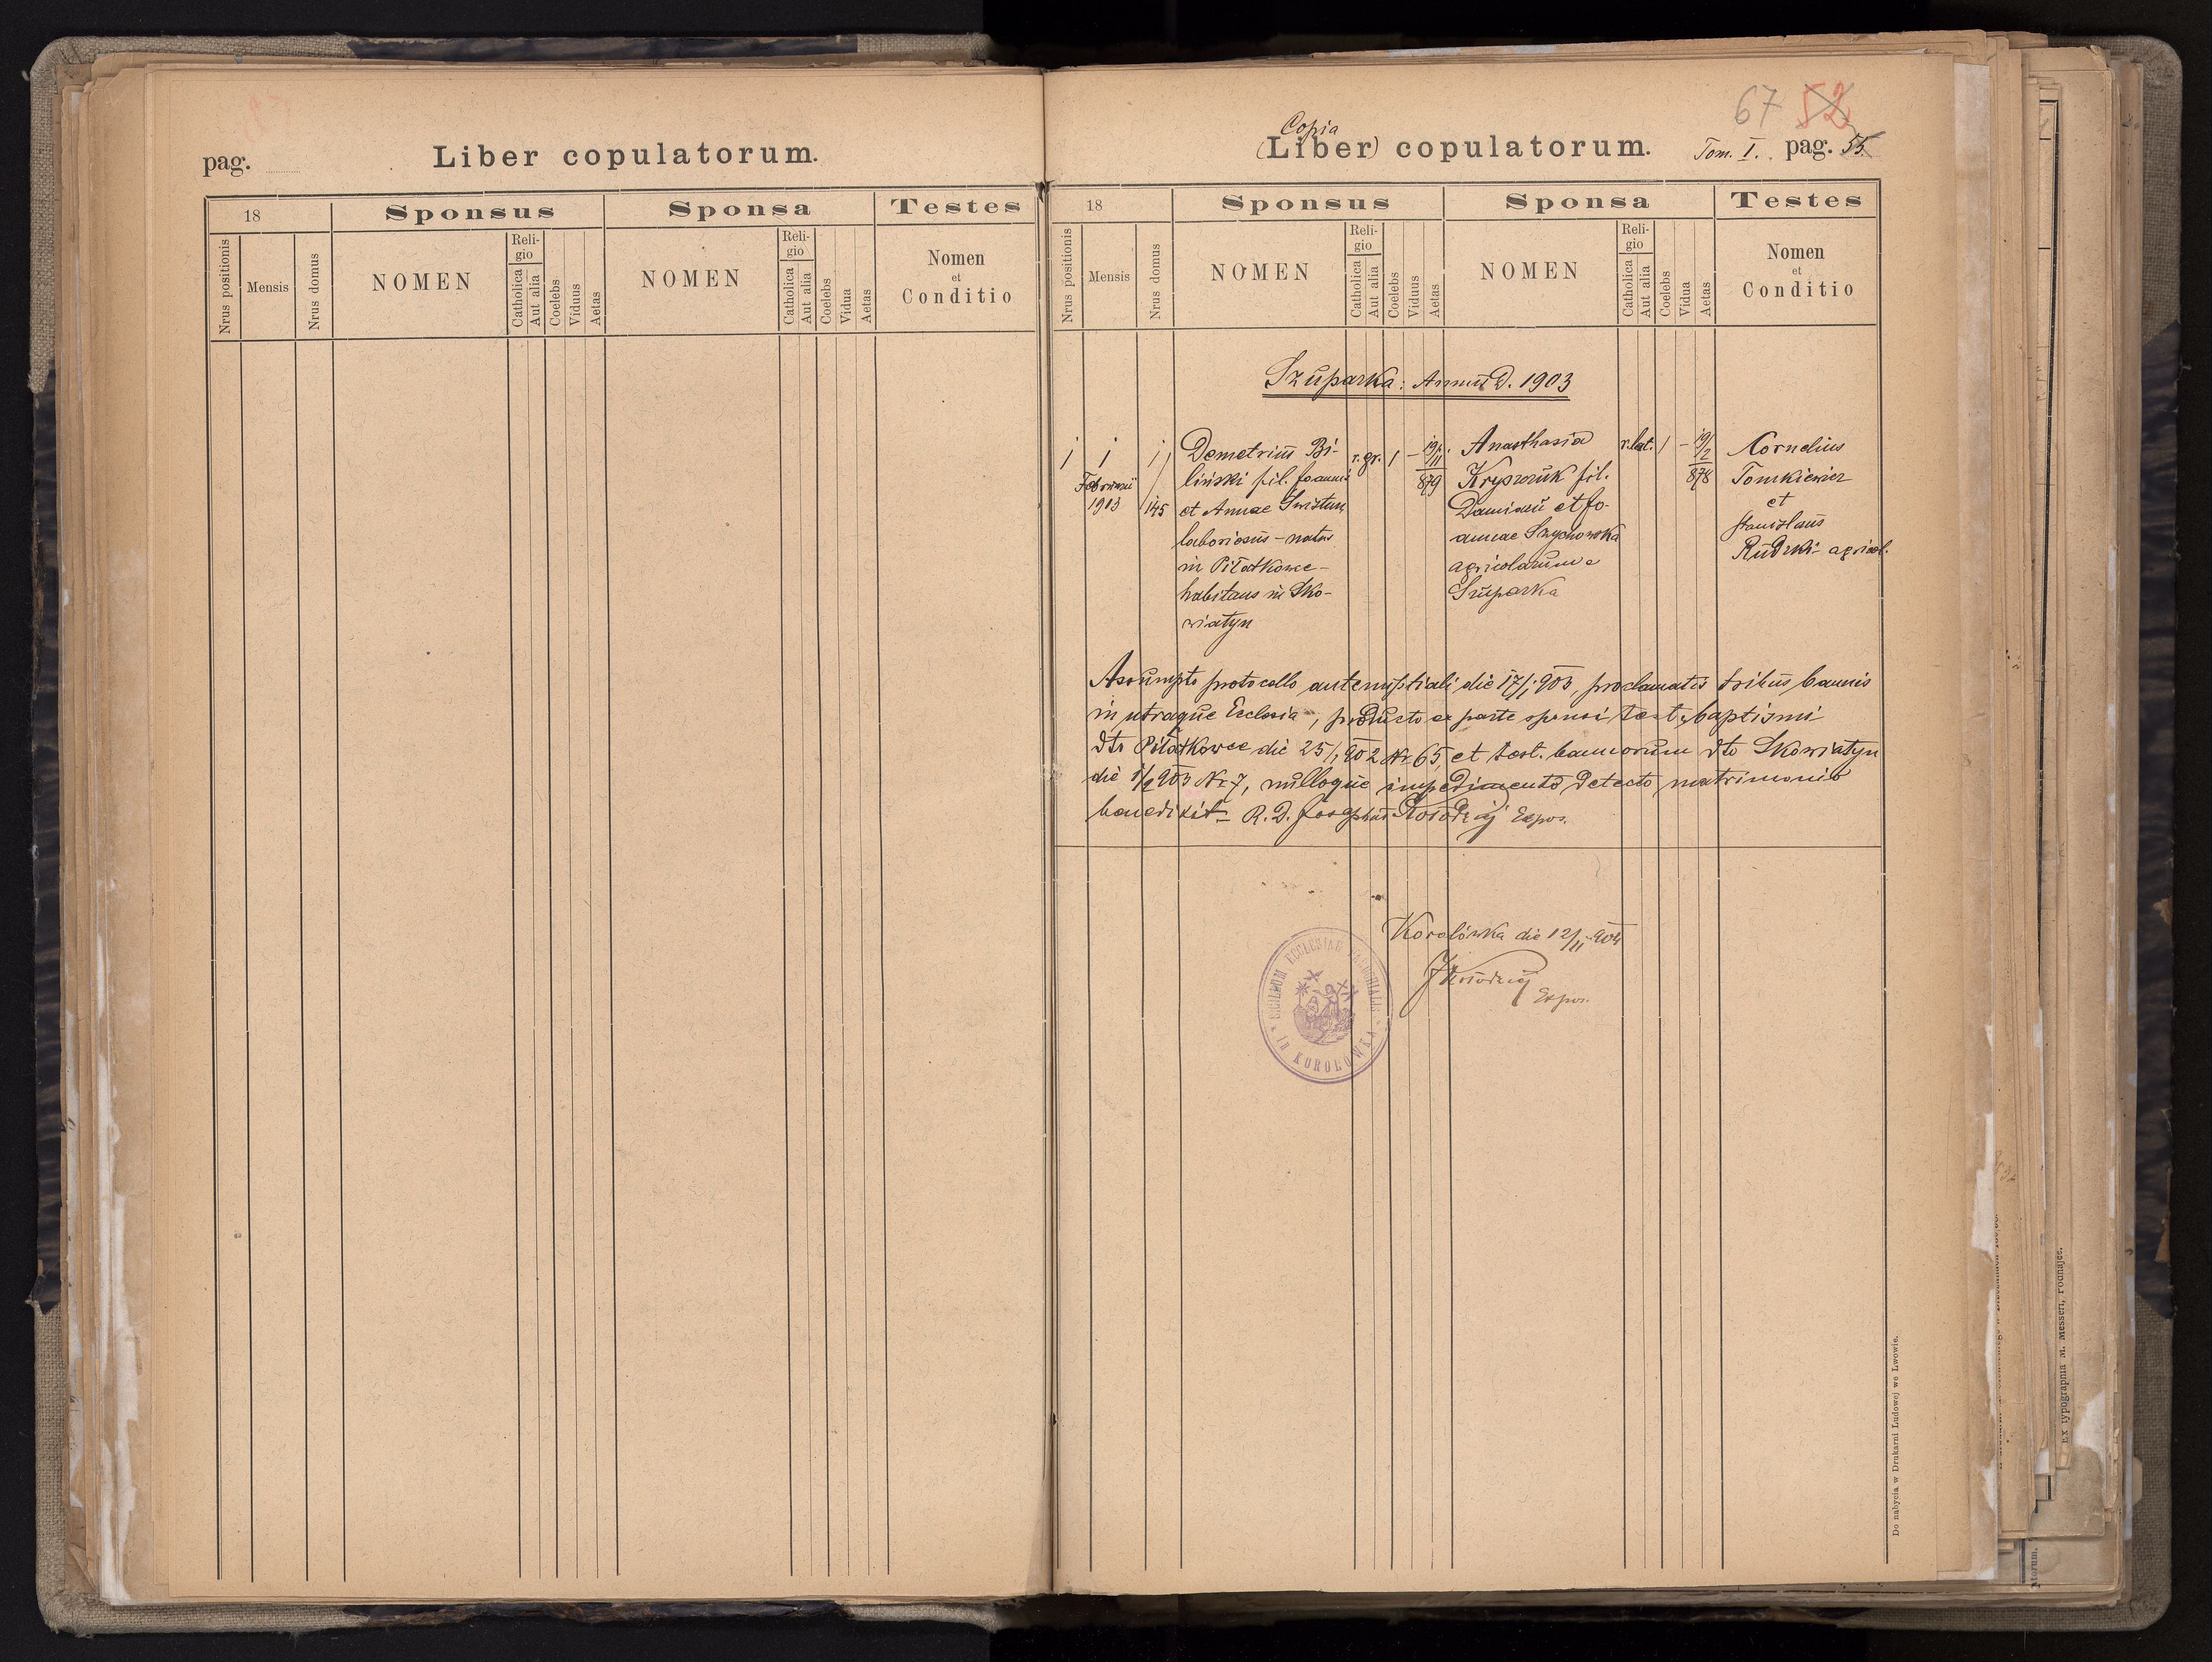 pag.
Liber copulatorum.
18
Sponsus
Sponsa
Testes
Nrus positionis
Mensis
Nrus domus
NOMEN
Religio
Catholica
Aut alia
Coelebs
Viduus
Aetas
NOMEN
Religio
Catholica
Aut alia
Coelebs
Vidua
Aetas
Nomen
et
Conditio
67 52
Copia
(Liber) copulatorum. Tom. I. pag. 55.
18
Sponsus
Sponsa
Testes
Nrus positionis
Mensis
Nrus domus
NOMEN
Religio
Catholica
Aut alia
Coelebs
Viduus
Aetas
NOMEN
Religio
Catholica
Aut alia
Coelebs
Vidua
Aetas
Nomen
et
Conditio
Szuparka: Annus D. 1903
1
1
Februarii
1903
145
Demetrius Bi-
liński fil. Joannis
et Annae
laboriosus - natus
in Piłatkowce -
habitans in Sko-
wiatyn
r. gr. 1 -
19/11
879
Anasthasia
Kryszczuk fil.
Damiani et Jo-
annae Szychowska
agricolarum e
Szuparka
r. lat. 1 -
19/2
878
Cornelius
Tomkiewicz
et
Stanislaus
Rudzki - agricol.
Assumpto protocollo antenuptiali die 17/1 903, proclamatis tribus bannis
in utraque Ecclesia, producto ex parte sponsi test. baptismi
dto Piłatkowce die 25/1 902 Nr 65, et test. bannorum dto Skowiatyn
die 1/2 903 Nr 7, nulloque impedimento detecto matrimonio
benedixit - R. D. Josephus Kołodziej Expos.
Korolówka die 12/11 904
JKołodziej
Expos.
SIGILLUM ECCLESIAE PAROCHIALIS IN KOROLÓWKA
Do nabycia w Drukarni Ludowej we Lwowie.
Ex typographia M. Messeri, Podhajce.